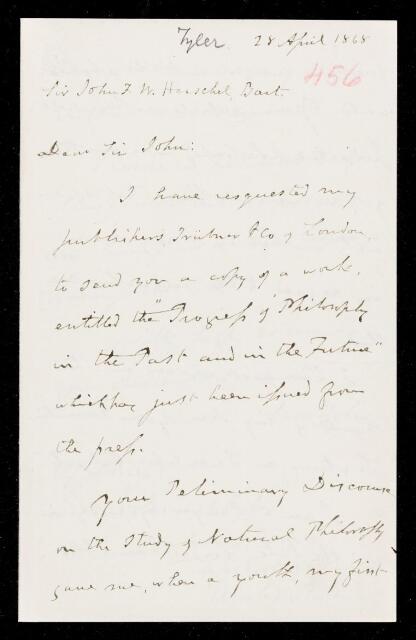 Tyler. 28 April 1868
456
Sir John F. W. Herschel, Bart.
Dear Sir John:
I have requested my
publishers Trübner & Co of London,
to send you a copy of a work,
entitled the "Progress of Philosophy
in the Past and in the Future"
which has just been issued from
the press.
Your Preliminary Discourse
on the Study of Natural Philosophy
gave me, when a youth, my first